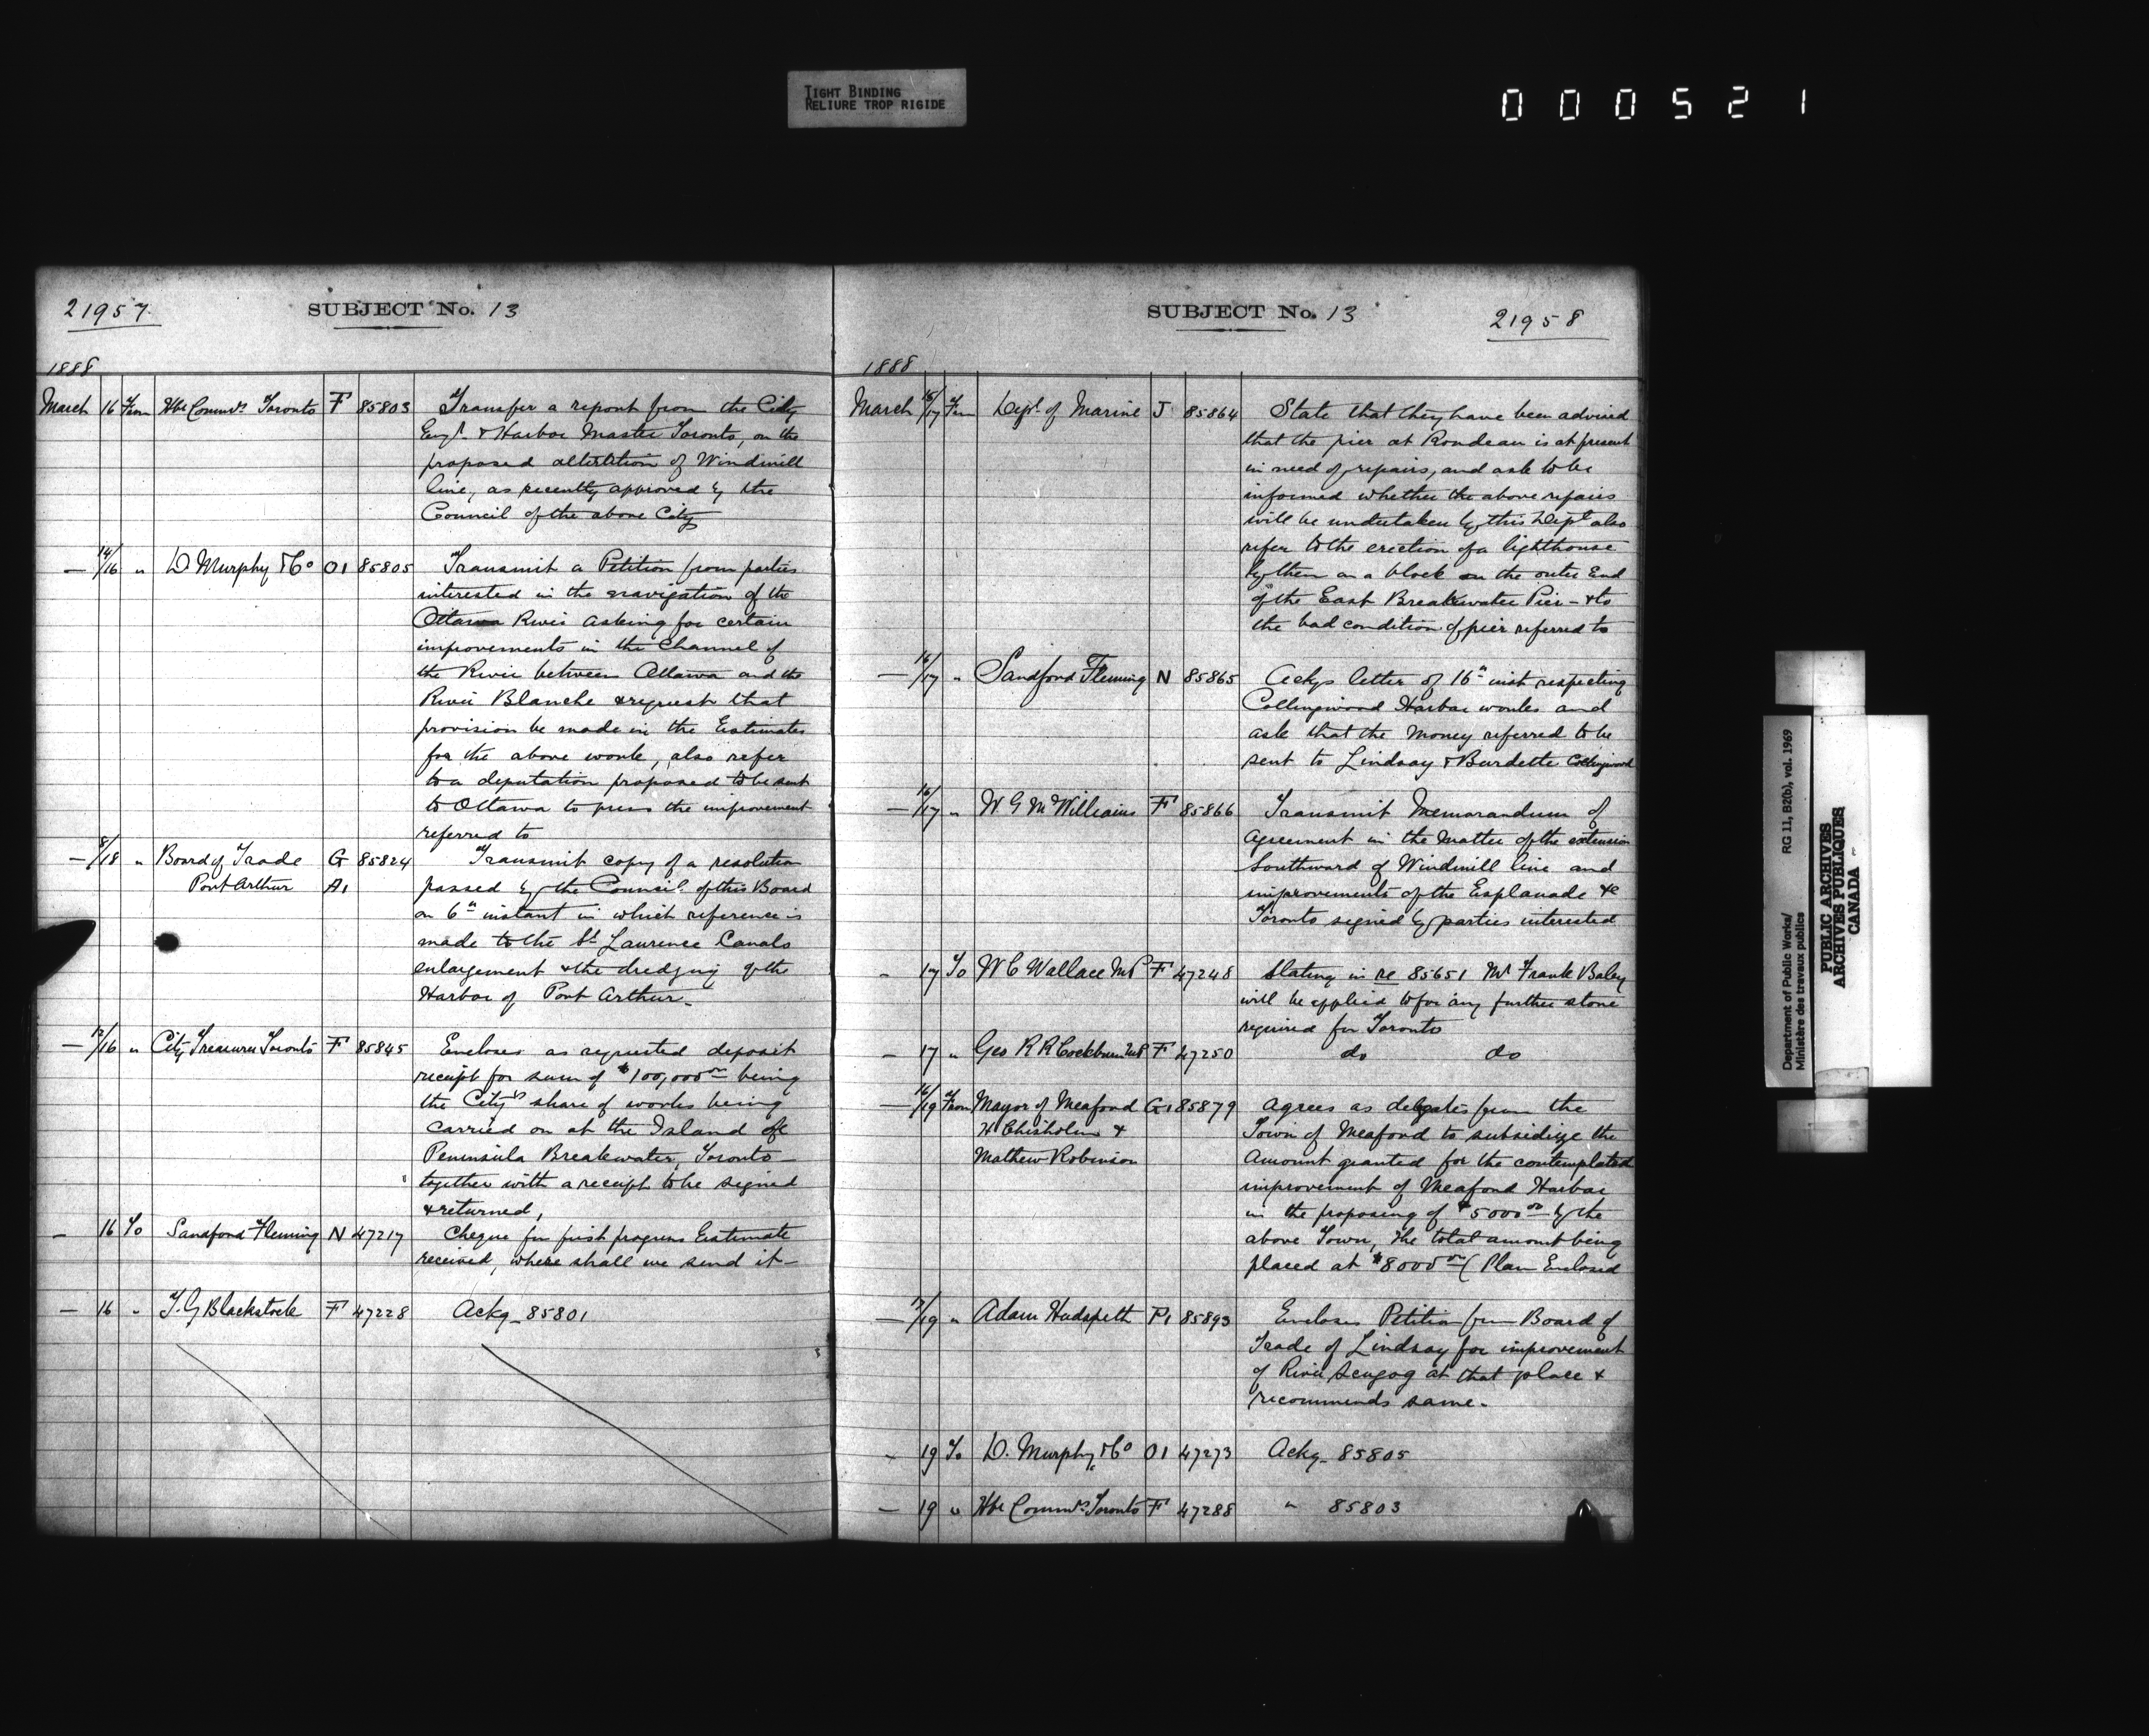 TIGHT BINDING
RELIURE TROP RIGIDE
000521
21957
SUBJECT No. 13
1888
March 16 From Hbr Commrs Toronto F 85803 Transfer a report from the City
Engr & Harbor Master Toronto, on the
proposed altertition of Windmill
line, as recently approved by the
Council of the above City
— 14/16 " D Murphy & Co O1 85805 Transmit a Petition from parties
interested in the navigation of the
Ottawa River asking for certain
improvements in the Channel of
the River between Ottawa and the
River Blanche & request that
provision be made in the Estimates
for the above work, also refer
to a deputation proposed to be sent
to Ottawa to press the improvement
referred to
— 8/18 " Board of Trade G 85824 Transmit copy of a resolution
Port Arthur A1 passed by the Council of this Board
on 6th instant in which reference is
made to the St Laurence Canals
enlargement & the dredging of the
Harbor of Port Arthur —
— 12/16 " City Treasurer Toronto F 85845 Encloses as requested deposit
receipt for sum of $100,000.00 being
the City's share of works being
carried on at the Island &
Peninsula Breakwater, Toronto —
together with a receipt to be signed
& returned,
— 16 To Sandford Fleming N 47217 Cheque for first progress Estimate
received, where shall we send it —
— 16 " T. G Blackstock F 47228 Ackg — 85801
SUBJECT No. 13
21958
1888
March 15/17 From Dept. of Marine J 85864 State that they have been advised
that the pier at Rondeau is at present
in need of repairs, and ask to be
informed whether the above repairs
will be undertaken by this Dept also
refer to the erection of a lighthouse
by them on a block on the outer End
of the East Breakwater Pier — & to
the bad condition of pier referred to
— 16/17 " Sandford Fleming N 85865 Ackgs letter of 16th inst respecting
Collingwood Harbor works and
ask that the money referred to be
sent to Lindsay & Burdette Collingwood
— 16/17 " W G McWilliams F 85866 Transmit Memorandum of
Agreement in the matter of the extension
Southward of Windmill line and
improvements of the Esplanade &c
Toronto signed by parties interested
- 17 To W C Wallace MP F 47248 Stating in re 85651 Mr Frank Baley
will be applied to for any further stone
required for Toronto
- 17 " Geo R R Cockburn MP F 47250 do do
— 16/19 From Mayor of Meaford G1 85879 Agrees as delegates from the
H Chisholm & Town of Meaford to subsidize the
Mathew Robinson Amount granted for the contemplated
improvement of Meaford Harbor
in the proposing of $5000.00 by the
above Town, the total amount being
placed at $8000.00 (Plan Enclosed
— 17/19 " Adam Hudspeth P1 85893 Encloses Petition from Board of
Trade of Lindsay for improvement
of River Scugog at that place &
recommends same —
- 19 To D. Murphy & Co O1 47273 Ackg — 85805
— 19 " Hbr Commrs Toronto F 47288 " 85803
Department of Public Works/ RG 11, B2(b), vol. 1969
Ministère des travaux publics
PUBLIC ARCHIVES
ARCHIVES PUBLIQUES
CANADA